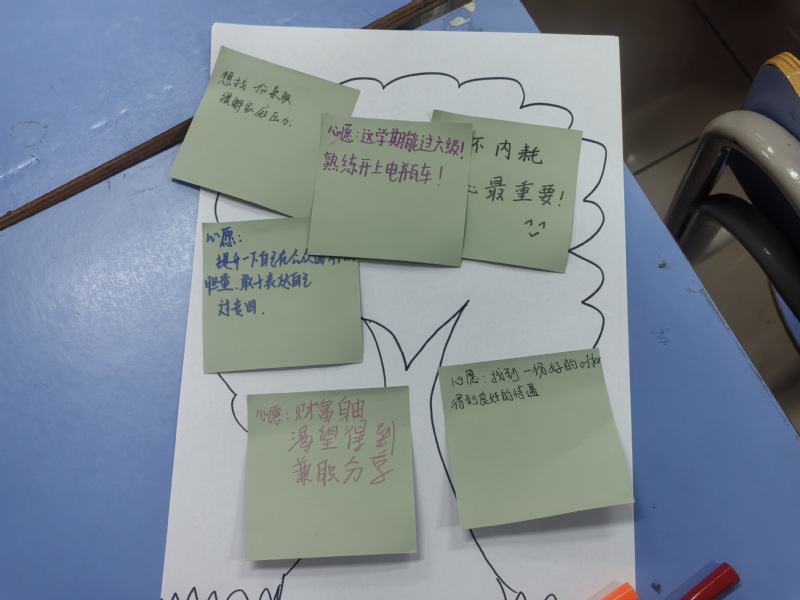 想找一份兼职
缓解家庭压力.
心愿：这学期能过六级!
熟练开上电瓶车！
不内耗
心最重要!
心愿：
提升一下自己在公众面前的
胆量.敢于表达自己
心愿：财富自由
渴望得到
兼职分享
心愿：找到一份好的offer
得到良好的待遇